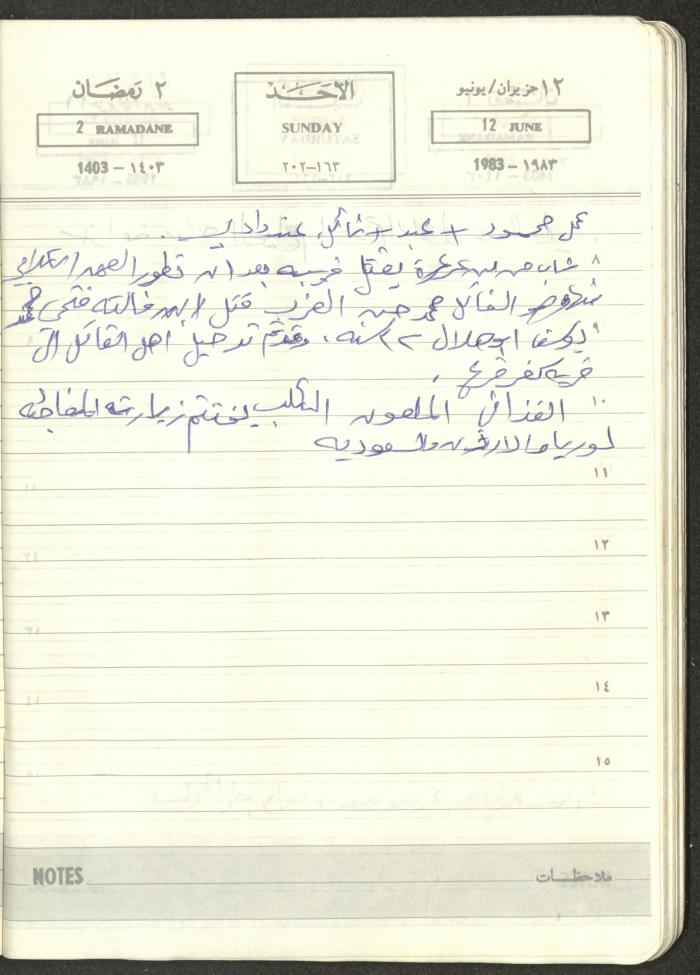 ٢ رمضان
2 RAMADANE
1403 - ١٤٠٣
الأحد
SUNDAY
٢٠٢-١٦٣
١٢ حزيران/يونيو
12 JUNE
1983 - ١٩٨٣
عمل محمود + عبد + نائل عند داديب.
٨
شاب من عرعرة يقتل قريبه بعد ان تطور
القاتل محمد حسن العزب قتل ابن خالته فتحي محمد
٩
يوسف ابو هلال ٢٢ سنه، وتم ترحيل اهل القاتل الى
قريه كفر قرع.
١٠
القذافي الملعون الكلب يختتم زيارته المفاجئه
لسوريا والاردن والسعوديه
١١
١٢
١٣
١٤
١٥
NOTES
ملاحظات